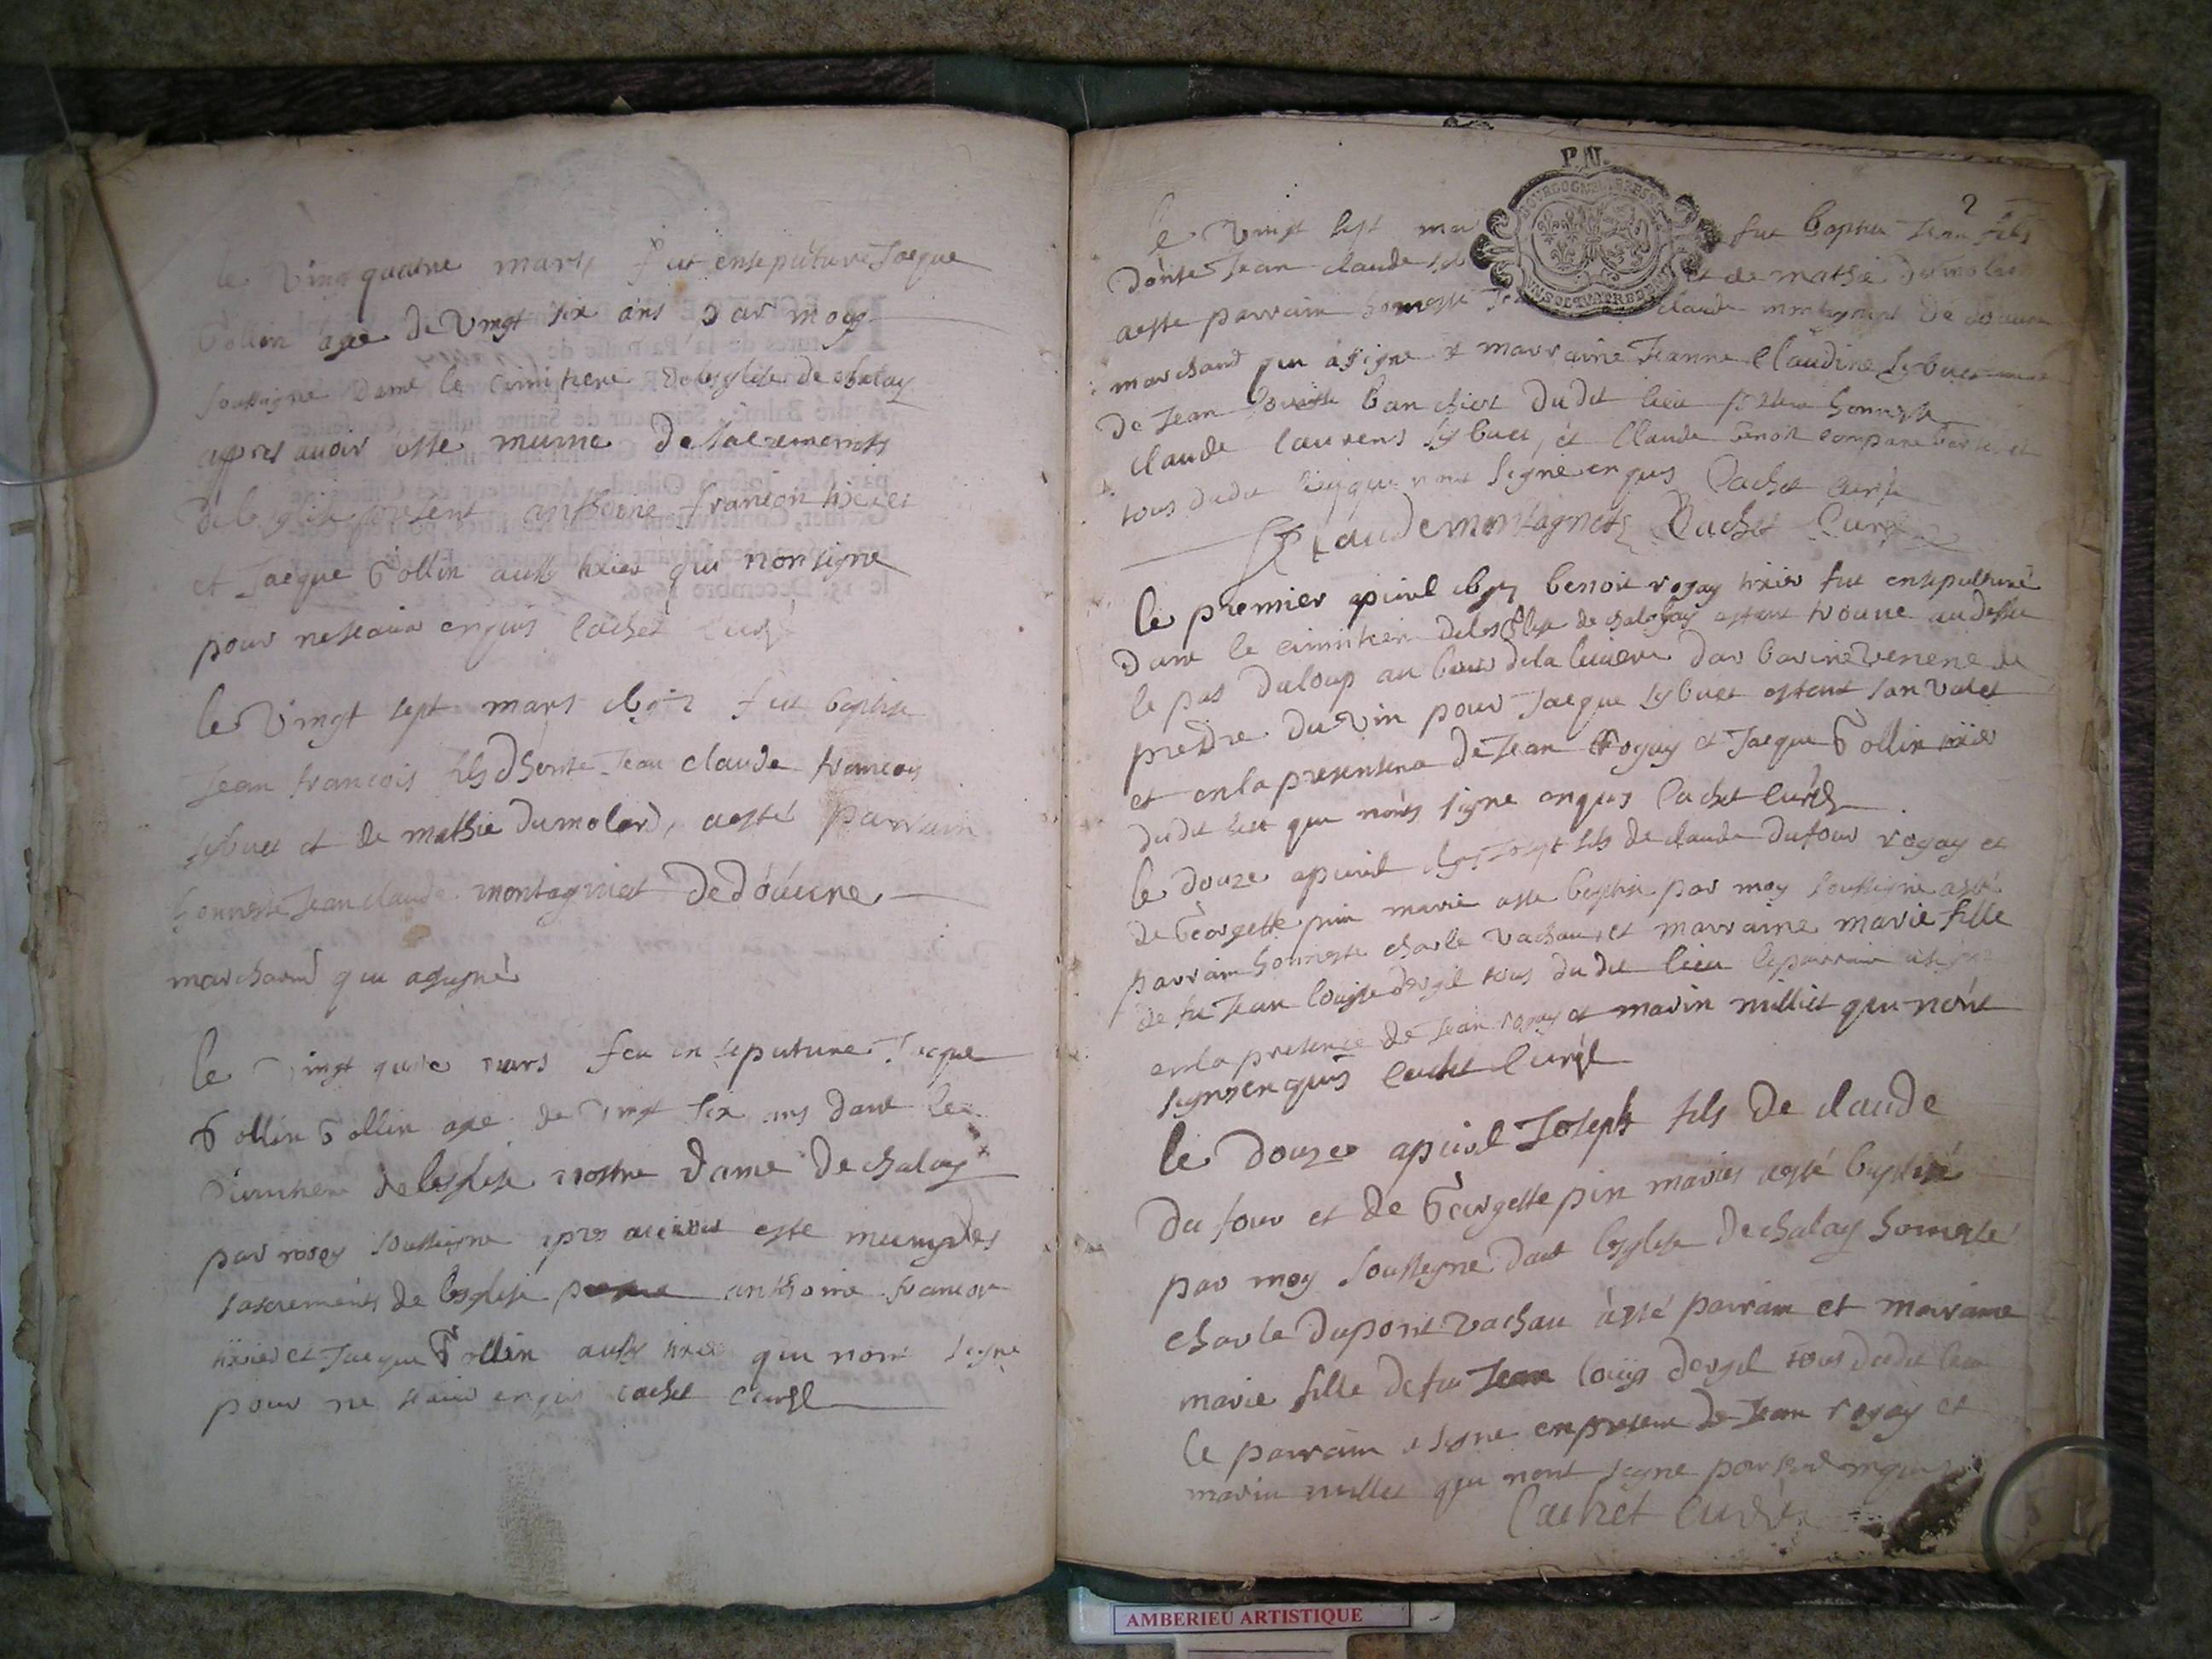 le vingt quatre mars fut enseputure Jacque
Gollin age de vingt six ans par moy
soussigne dans le cimitiere de lesglise de chaley
appres avoir este munie de sacrements
de lesglise present anthoine francon tixier
et Jacque Gollin aussy tixier qui nont signe
pour ne scavoir enquis Cachet Curé
le vingt sept mars fut baptise
Jean francois fils dhonte Jean claude francois
lybuet et de mathie Dumolard, aesté parrain
honneste Jean claude montagniet de douure
marchand qui asigné
le vingt quatre mars feu enseputure Jacque
Gollin Gollin age de vingt six ans dant le
cimitiere de lesglise nostre dame de chaley
par moy soussigne apres avoir este muny des
sacrements de lesglise anthoine francon
tixier et Jacque Gollin aussy tixier qui nont signe
pour ne scavoir enquis cachet Curé
P.N.
2
le vingt sept mar fut baptise Jean fils
donte Jean claude et de mathie dumolar
aeste parrain honneste claude montagniet de douure
marchand qui a signe et marraine Jeanne Claudine lybuet
de Jean banchiet dudit lieu honneste
claude laurens lybuet, et Claude benoit
tous dudit lieu qui nont signe enquis Cachet Curé
Claude montagniet Cachet Curé
le premier apvril benoit rogay tixier fut ensepulturé
dant le cimitiere de lesglise de chaley estant trouve au dessu
le pas du loup au bout de la
prendre du vin pour Jacque lybuet estant son valet
et en la presentena de Jean Rogay et Jacque Gollin tixier
dudit lieu qui nonts signe enquis Cachet Curé
le douze apvril fils de claude dufour rogay et
de Georgette pin marie aste baptise par moy soussigne asté
parrain honneste charle vachau et marraine marie fille
de fu Jean Louys dorgil tous du dit lieu le parrain a signe
en la presence de Jean rogay et marin milliet qui nont
signe enquis Cachet Curé
le douzee apvril Joseph fils de claude
du four et de Georgette pin maries aesté baptisé
par moy soussigne dant lesglise de chaley honneste
charle dupont vachau àsté parrain et marraine
marie fille de fu Jean louys dorgil tous dudit lieu
le parrain a signe en presence de Jean rogay et
marin milliet qui nont signe pour enquis
Cachet Curé
AMBERIEU ARTISTIQUE